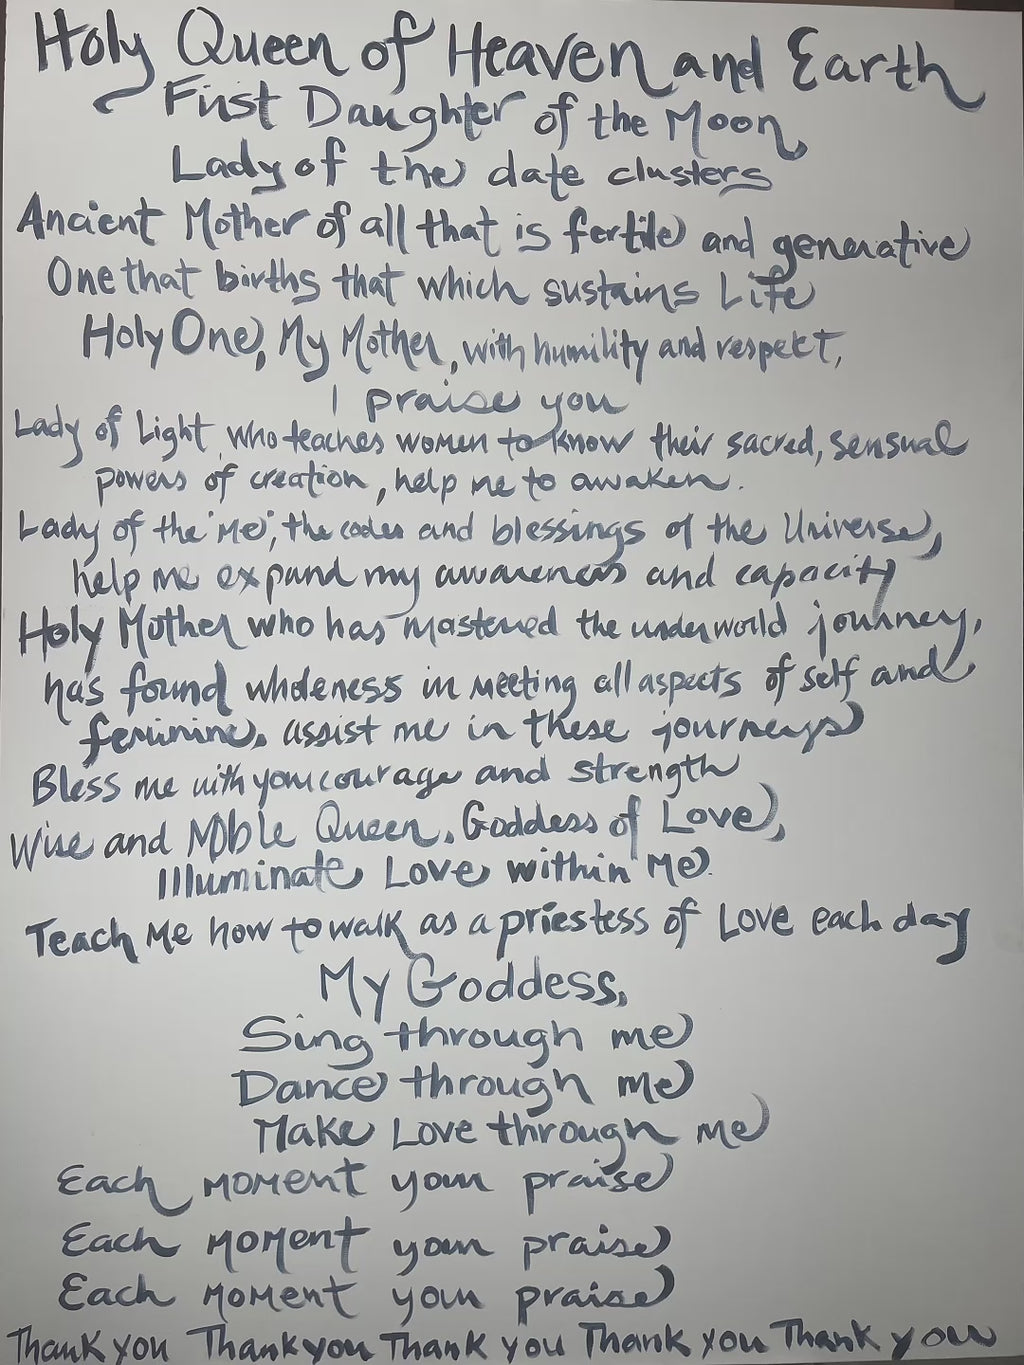 Holy Queen of Heaven and Earth
First Daughter of the Moon
Lady of the date clusters
Ancient Mother of all that is fertile and generative
One that births that which sustains Life
Holy One, My Mother, with humility and respect,
I praise you
Lady of Light, who teaches women to know their sacred, sensual
powers of creation, help me to awaken.
Lady of the "Me", the codes and blessings of the Universe,
help me expand my awareness and capacity
Holy Mother who has mastered the underworld journey,
has found wholeness in meeting all aspects of self and
feminine, assist me in these journeys
Bless me with your courage and strength
Wise and Noble Queen, Goddess of Love,
Illuminate Love within Me.
Teach Me how to walk as a priestess of Love each day
My Goddess,
Sing through me
Dance through me
Make Love through me
Each moment your praise
Each moment your praise
Each moment your praise
Thank you Thank you Thank you Thank you Thank you